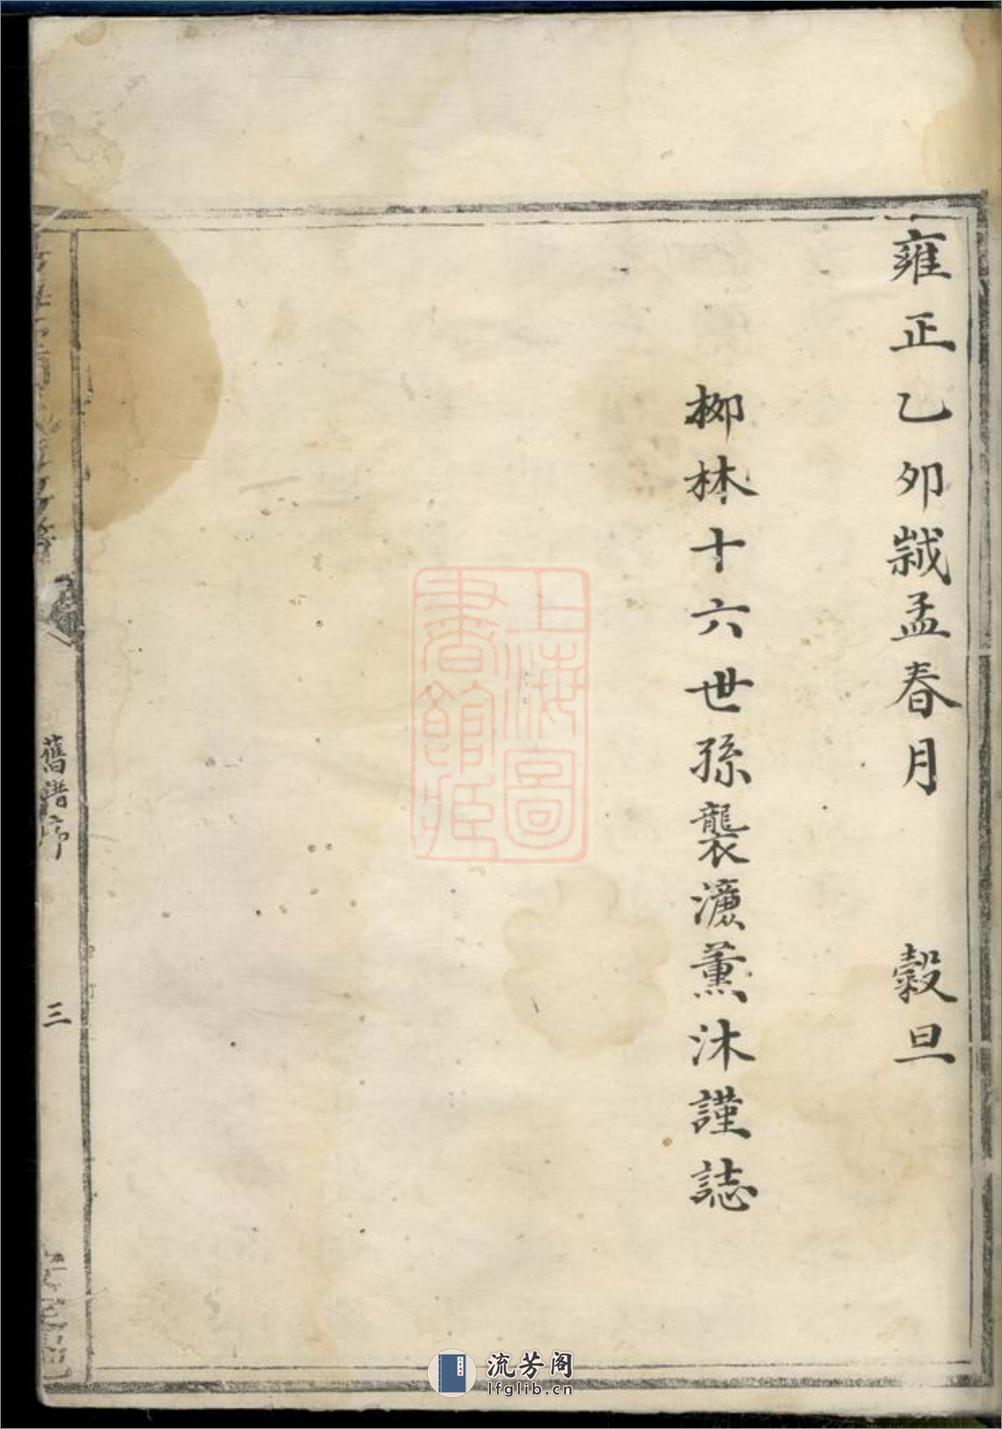 雍正乙卯歲孟春月 穀旦
柳林十六世孫襲灋薰沐謹誌
舊譜序
三
上海圖
書館藏
流芳阁
lfglib.cn